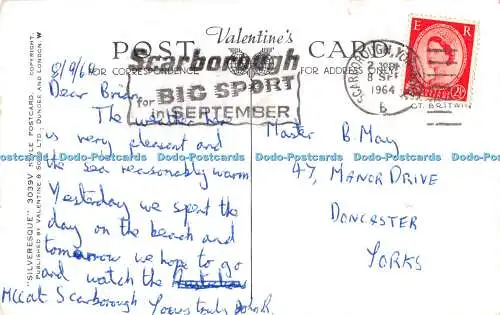 Valentine's
POST CARD
FOR CORRESPONDENCE
FOR ADDRESS ONLY
Scarborough
for BIG SPORT
in SEPTEMBER
SCARBOROUGH, YORKS
8 SEP
1964
b
E R
GT. BRITAIN
8/9/64
Dear Brian,
The weather
is very pleasant and
the sea reasonably warm
Yesterday we spent the
day on the beach and
tomorrow we hope to go
and watch the
McCat Scarborough Yours truly John R.
Master B May
47, MANOR DRIVE
DONCASTER
YORKS
"SILVERESQUE" 3039V STYLE POSTCARD. COPYRIGHT.
PUBLISHED BY VALENTINE & SONS LTD. DUNDEE AND LONDON. W
Dodo-Postcards Dodo-Postcards Dodo-Postcards Dodo-Postcards Dodo-Postcards Dodo-Postcards